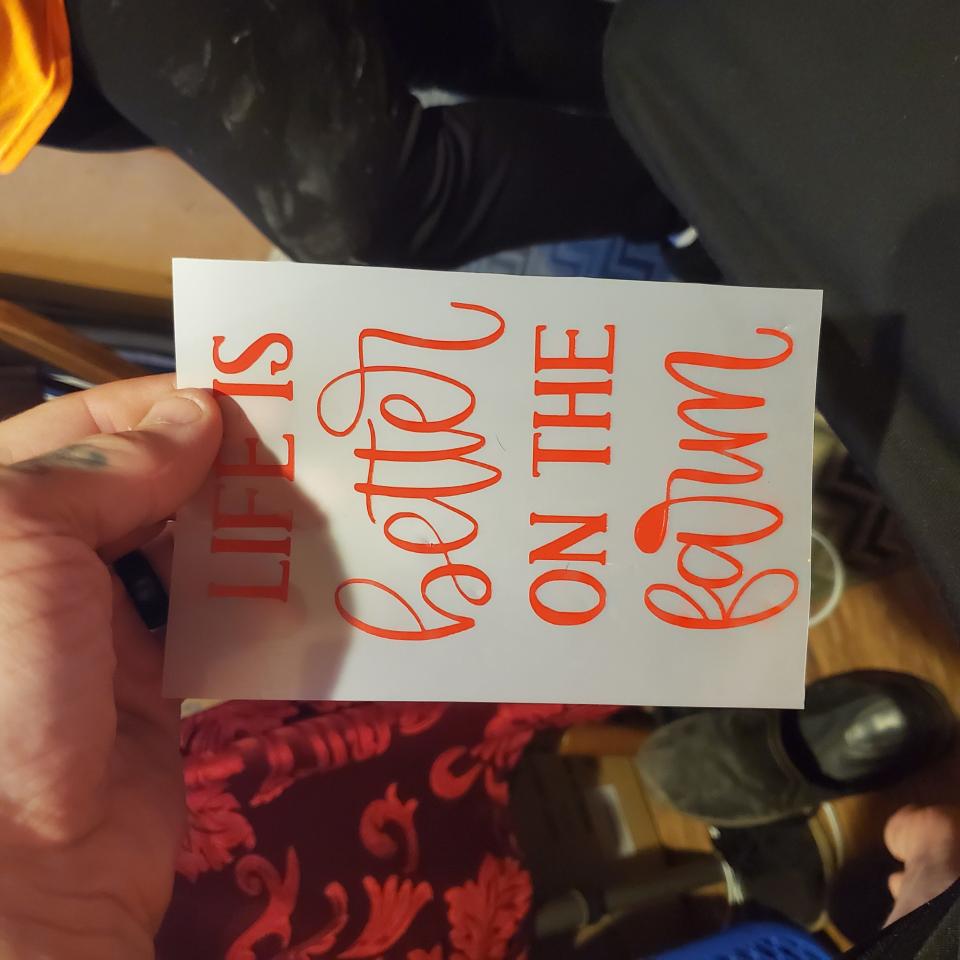 LIFE IS
better
ON THE
farm